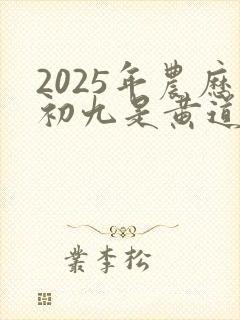 2025年農歷
初九是黄道
業李松